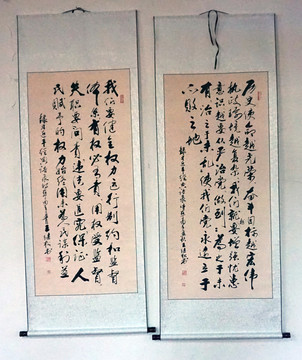 历史使命越光荣奋斗目标越宏伟
执政环境越复杂我们就越要增强忧患
意识越要从严治党做到为之于未
有治之于未乱使我们党永远立于
不败之地
我们要健全权力运行制约和监督
体系有权必有责用权受监督
失职要问责违法要追究保证人
民赋予的权力始终用来为人民谋利益